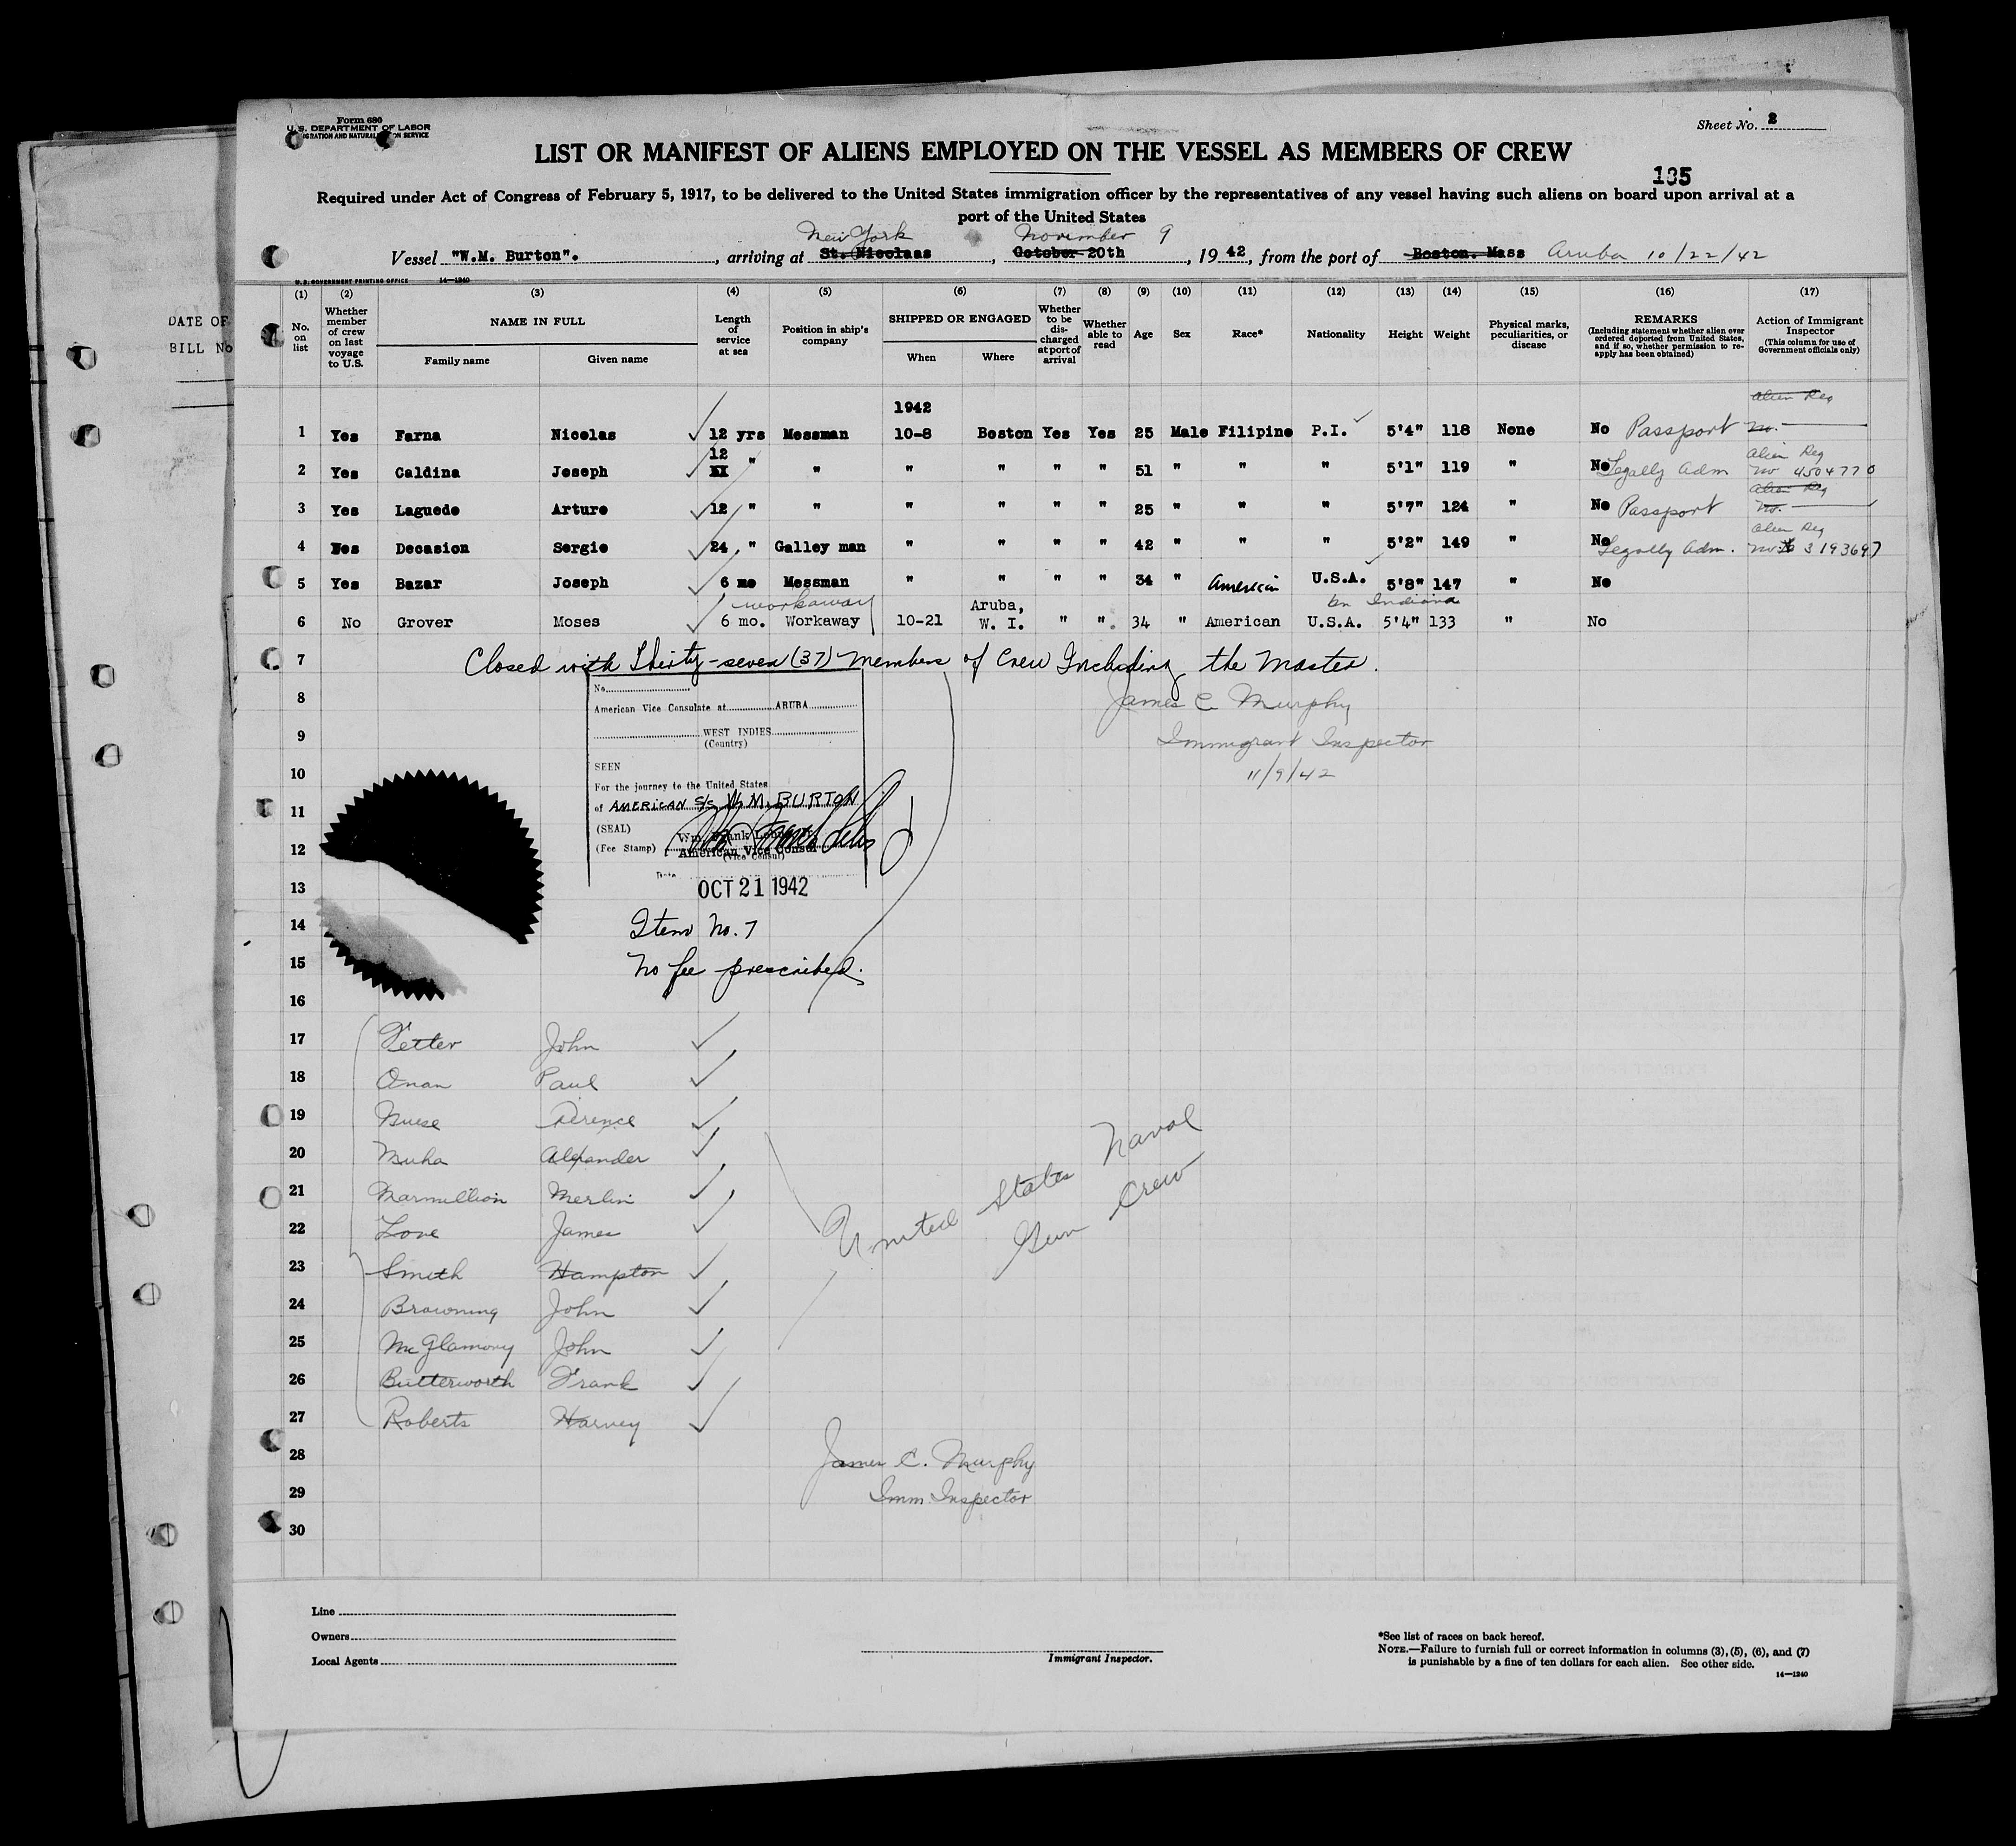 Form 680
U. S. DEPARTMENT OF LABOR
Sheet No. 2
LIST OR MANIFEST OF ALIENS EMPLOYED ON THE VESSEL AS MEMBERS OF CREW
185
Required under Act of Congress of February 5, 1917, to be delivered to the United States immigration officer by the representatives of any vessel having such aliens on board upon arrival at a
port of the United States
New York November 9
Vessel "W.M. Burton". , arriving at St. Nicolaas , October 20th , 19 42, from the port of Boston. Mass Aruba 10/22/42
U. S. GOVERNMENT PRINTING OFFICE 14—1240
DATE OF
BILL No
(1) (2) (3) (4) (5) (6) (7) (8) (9) (10) (11) (12) (13) (14) (15) (16) (17)
No. on list
Whether member of crew on last voyage to U.S.
NAME IN FULL
Family name
Given name
Length of service at sea
Position in ship's company
SHIPPED OR ENGAGED
When
Where
Whether to be discharged at port of arrival
Whether able to read
Age
Sex
Race*
Nationality
Height
Weight
Physical marks, peculiarities, or disease
REMARKS
(Including statement whether alien ever ordered deported from United States, and if so, whether permission to reapply has been obtained)
Action of Immigrant Inspector
(This column for use of Government officials only)
1942
Alien Reg
1 Yes Farna Nicolas 12 yrs Messman 10-8 Boston Yes Yes 25 Male Filipino P.I. 5'4" 118 None No Passport No.
12 Alien Reg
2 Yes Caldina Joseph XX " " " " " " 51 " " " 5'1" 119 " No Legally Adm No 4504770
Alien Reg
3 Yes Laguedo Arturo 12 " " " " " " 25 " " " 5'7" 124 " No Passport No.
Alien Reg
4 Yes Decasion Sergio 24 " Galley man " " " " 42 " " " 5'2" 149 " No Legally Adm. No 3193697
5 Yes Bazar Joseph 6 mo Messman " " " " 34 " American U.S.A. 5'8" 147 " No
workaway Aruba, bn Indiana
6 No Grover Moses 6 mo. Workaway 10-21 W. I. " " 34 " American U.S.A. 5'4" 133 " No
7 Closed with Thirty-seven (37) Members of Crew Including the Master.
8 James C Murphy
9 Immigrant Inspector
10 11/9/42
11
12
13
14
15
16
No.
American Vice Consulate at ARUBA
WEST INDIES
(Country)
SEEN
For the journey to the United States
of AMERICAN S/S W.M. BURTON
(SEAL)
Wm. Frank
(Fee Stamp)
American Vice Consul
(Vice Consul)
Date
OCT 21 1942
Item No. 7
No fee prescribed.
17 Yetter John
18 Onan Paul
19 Nuese Terence
20 Muha Alexander
21 Marmillion Merlin
22 Love James
23 Smith Hampton
24 Browning John
25 McGlamory John
26 Butterworth Frank
27 Roberts Harvey
United States Naval
Gun Crew
28 James C. Murphy
29 Imm. Inspector
30
Line
Owners
Local Agents
Immigrant Inspector.
*See list of races on back hereof.
NOTE.—Failure to furnish full or correct information in columns (3), (5), (6), and (7)
is punishable by a fine of ten dollars for each alien. See other side.
14—1240